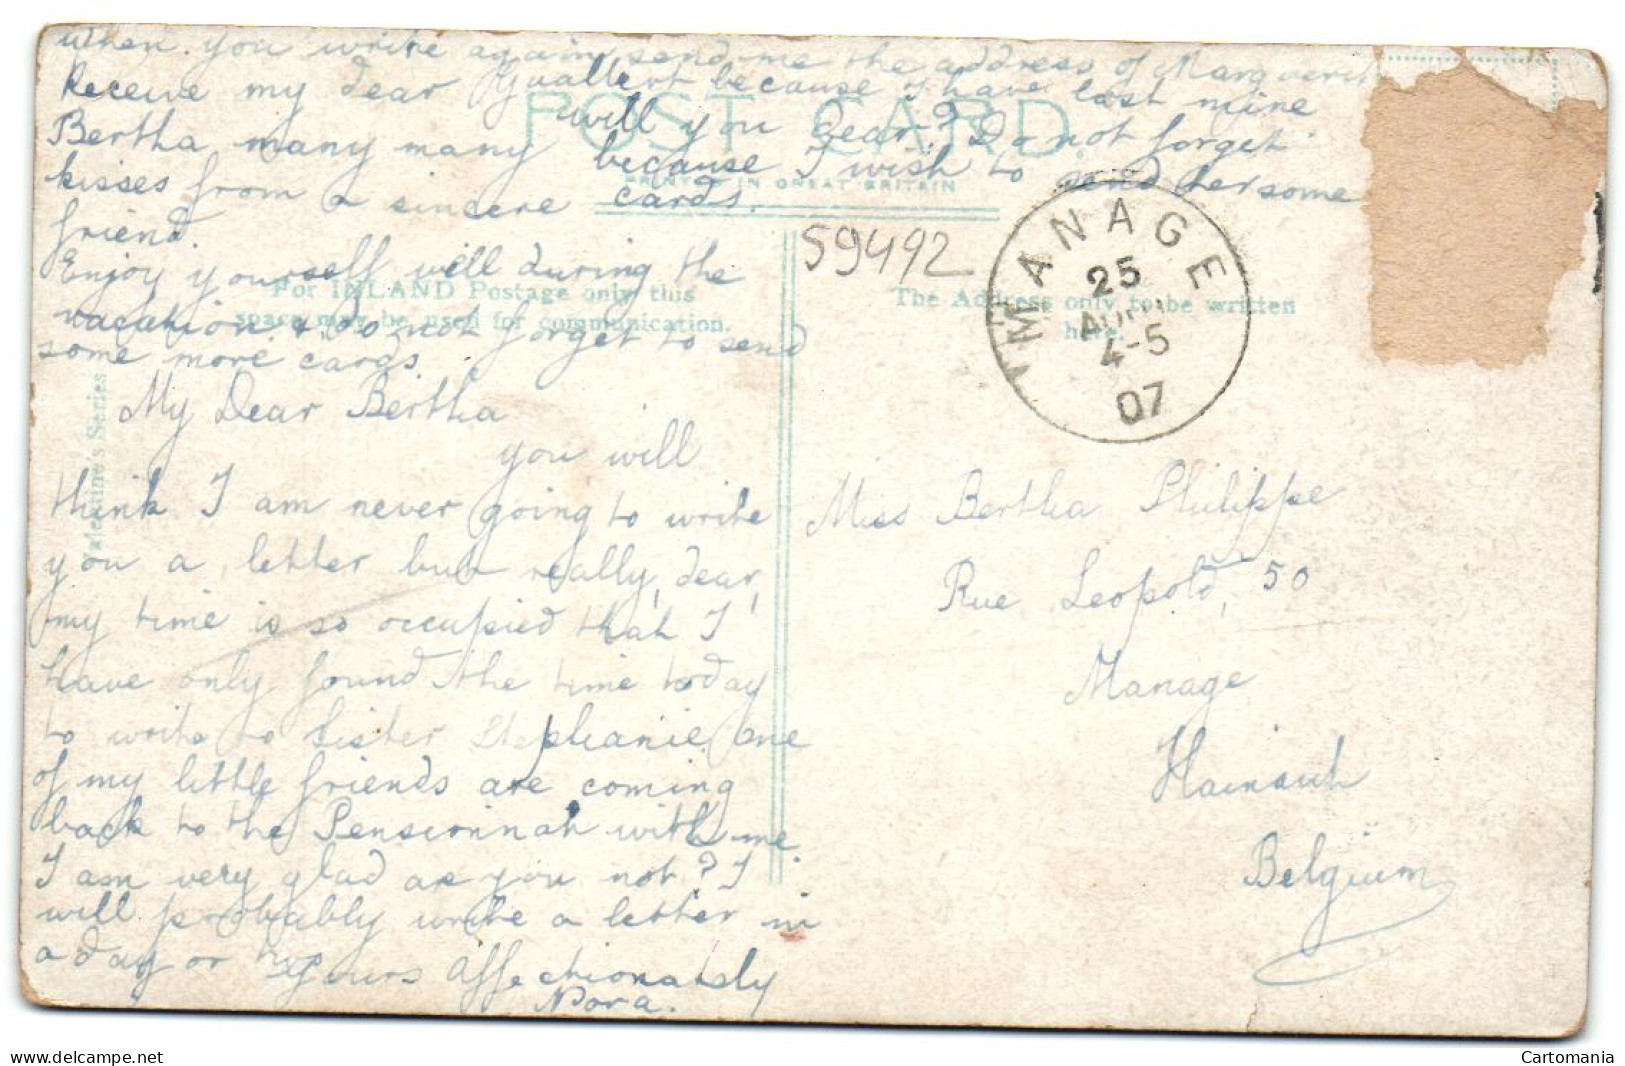 When you write again send me the address of Marguerite
Guallert because I have lost mine
will you Dear? Do not forget
because I wish to send her some
cards.
Receive my dear
Bertha many many
kisses from a sincere
friend.
Enjoy yourself well during the
vacation & do not forget to send
some more cards
My Dear Bertha
you will
think I am never going to write
you a letter but really, dear,
my time is so occupied that I
have only found the time today
to write to Sister Stephanie, One
of my little friends are coming
back to the Pensionnat with me.
I am very glad are you not? I
will probably write a letter in
a day or two
Yours affectionately
Nora.
POST CARD.
PRINTED IN GREAT BRITAIN
For INLAND Postage only this
space may be used for communication.
The Address only to be written
here.
Valentine's Series
59492
MANAGE
25
4-5
07
Miss Bertha Philippe
Rue Leopold, 50
Manage
Hainaut
Belgium
www.delcampe.net
Cartomania